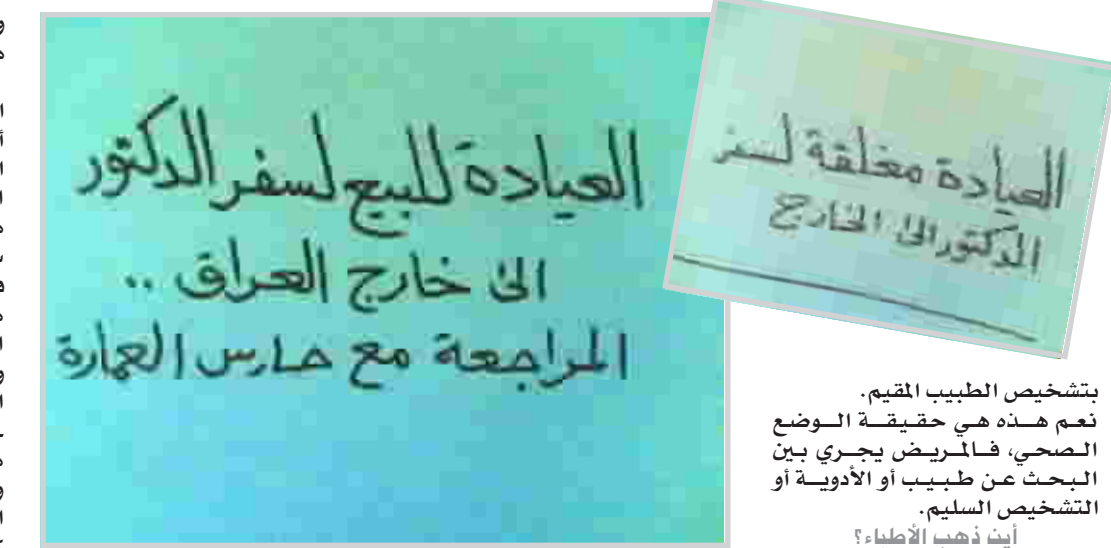 العيادة مغلقة لسفر
الدكتور الى الخارج
العيادة للبيع لسفر الدكتور
الى خارج العراق ..
المراجعة مع حارس العمارة
بتشخيص الطبيب المقيم.
نعم هذه هي حقيقة الوضع
الصحي، فالمريض يجري بين
البحث عن طبيب أو الأدوية أو
التشخيص السليم.
أين ذهب الأطباء؟